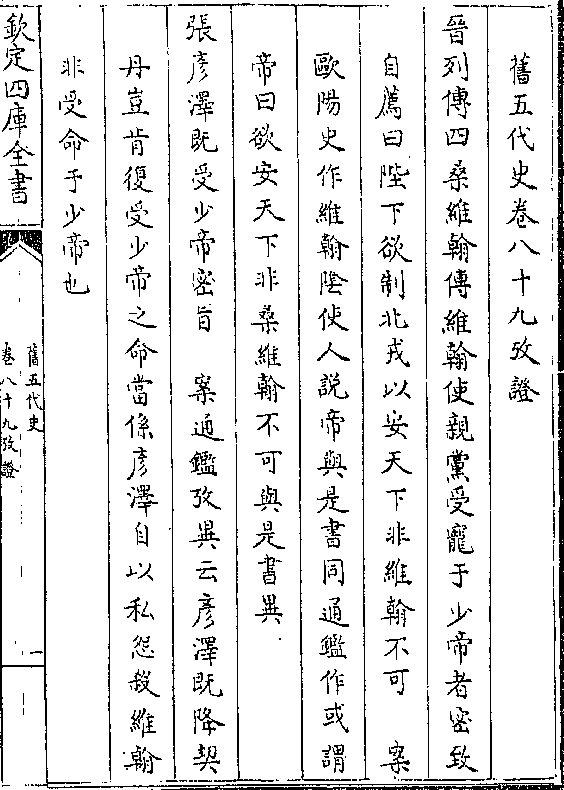 舊五代史卷八十九攷證
晉列傳四桑維翰傳維翰使親黨受寵于少帝者密致
自薦曰陛下欲制北戎以安天下非維翰不可　案
歐陽史作維翰陰使人說帝與是書同通鑑作或謂
帝曰欲安天下非桑維翰不可與是書異
張彥澤既受少帝密旨　案通鑑攷異云彥澤既降契
丹豈肯復受少帝之命當係彥澤自以私怨殺維翰
非受命于少帝也
欽定四庫全書
舊五代史
卷八十九攷證
一